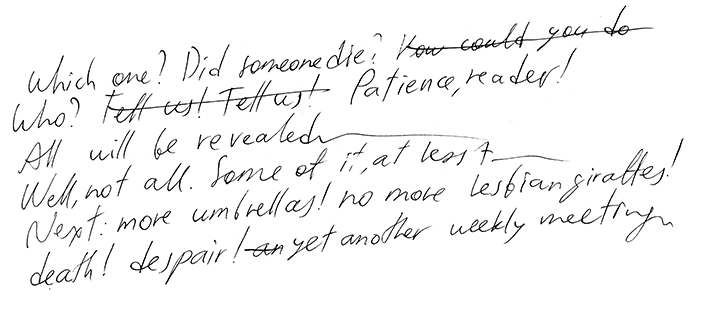 Which one? Did someone die? How could you do
Who? Tell us! Tell us! Patience, reader!
All will be revealed
Well, not all. Some of it, at least
Next: more umbrellas! no more lesbian giraffes!
death! despair! an yet another weekly meeting